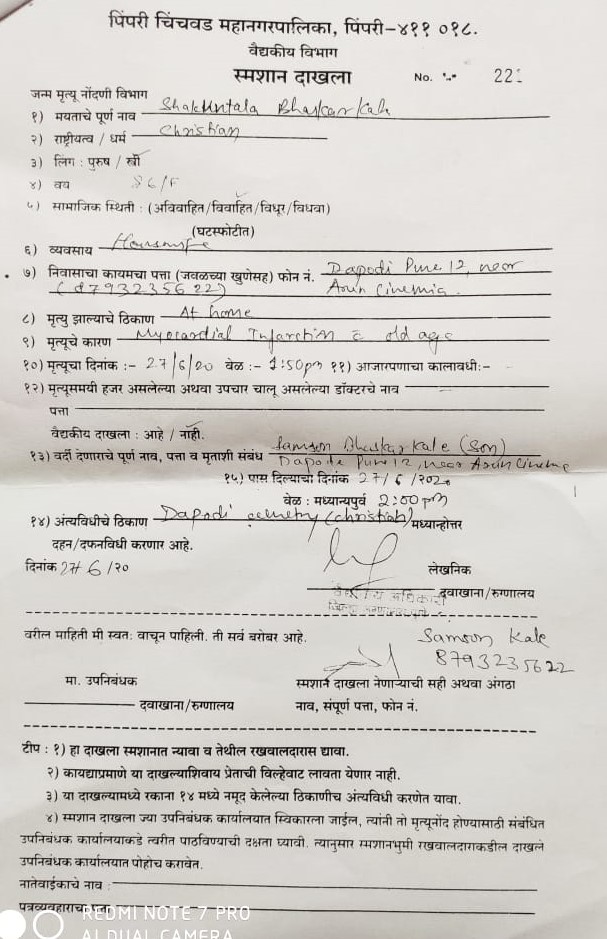 पिंपरी चिंचवड महानगरपालिका, पिंपरी-४११ ०१८.
वैद्यकीय विभाग
स्मशान दाखला No. 221
जन्म मृत्यू नोंदणी विभाग
१) मयताचे पूर्ण नाव Shakuntala Bhaskar Kale
२) राष्ट्रीयत्व / धर्म Christian
३) लिंग : पुरुष / स्त्री
४) वय 86/F
५) सामाजिक स्थिती : (अविवाहित/विवाहित/विधूर/विधवा)
(घटस्फोटीत)
६) व्यवसाय Housewife
७) निवासाचा कायमचा पत्ता (जवळच्या खुणेसह) फोन नं. Dapodi Pune 12, near
(8793235622) Arun Cinemia.
८) मृत्यु झाल्याचे ठिकाण At home
९) मृत्यूचे कारण Myocardial Infarction c̄ old age
१०) मृत्यूचा दिनांक :- 27/6/20 वेळ :- 1:50pm ११) आजारपणाचा कालावधी:-
१२) मृत्यूसमयी हजर असलेल्या अथवा उपचार चालू असलेल्या डॉक्टरचे नाव
पत्ता
वैद्यकीय दाखला : आहे / नाही.
१३) वर्दी देणाराचे पूर्ण नाव, पत्ता व मृताशी संबंध Samson Bhaskar Kale (Son)
Dapode Pune 12, near Arun Cineme
१५) पास दिल्याचा दिनांक 27/6/2020
वेळ : मध्यान्यपुर्व 2:00 pm
१४) अंत्यविधीचे ठिकाण Dapodi cemetry (christian) मध्यान्होत्तर
दहन/दफनविधी करणार आहे.
दिनांक 27/6/20
लेखनिक
वैद्यकीय अधिकारी दवाखाना/रुग्णालय
वरील माहिती मी स्वतः वाचून पाहिली. ती सर्व बरोबर आहे. Samson Kale
8793235622
मा. उपनिबंधक स्मशान दाखला नेणाऱ्याची सही अथवा अंगठा
दवाखाना/रुग्णालय नाव, संपूर्ण पत्ता, फोन नं.
टीप : १) हा दाखला स्मशानात न्यावा व तेथील रखवालदारास द्यावा.
२) कायद्याप्रमाणे या दाखल्याशिवाय प्रेताची विल्हेवाट लावता येणार नाही.
३) या दाखल्यामध्ये रकाना १४ मध्ये नमूद केलेल्या ठिकाणीच अंत्यविधी करणेत यावा.
४) स्मशान दाखला ज्या उपनिबंधक कार्यालयात स्विकारला जाईल, त्यांनी तो मृत्यूनोंद होण्यासाठी संबंधित
उपनिबंधक कार्यालयाकडे त्वरीत पाठविण्याची दक्षता घ्यावी. त्यानुसार स्मशानभूमी रखवालदाराकडील दाखले
उपनिबंधक कार्यालयात पोहोच करावेत.
नातेवाईकाचे नाव :
पत्रव्यवहाराचा
REDMI NOTE 7 PRO
AI DUAL CAMERA